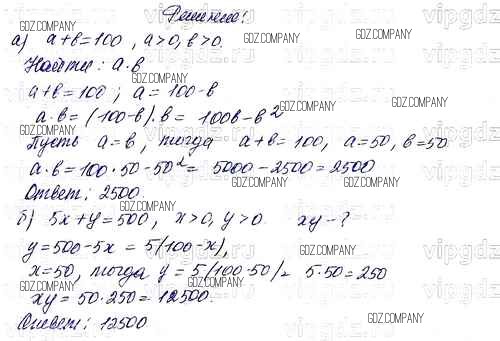 Решение:
а) a+b=100, a>0, b>0.
Найти: a·b
a+b=100; a=100-b
a·b=(100-b)·b=100b-b²
Пусть a=b, тогда a+b=100, a=50, b=50
a·b=100·50-50²=5000-2500=2500
Ответ: 2500.
б) 5x+y=500, x>0, y>0 xy-?
y=500-5x=5(100-x),
x=50, тогда y=5(100-50)=5·50=250
xy=50·250=12500.
Ответ: 12500